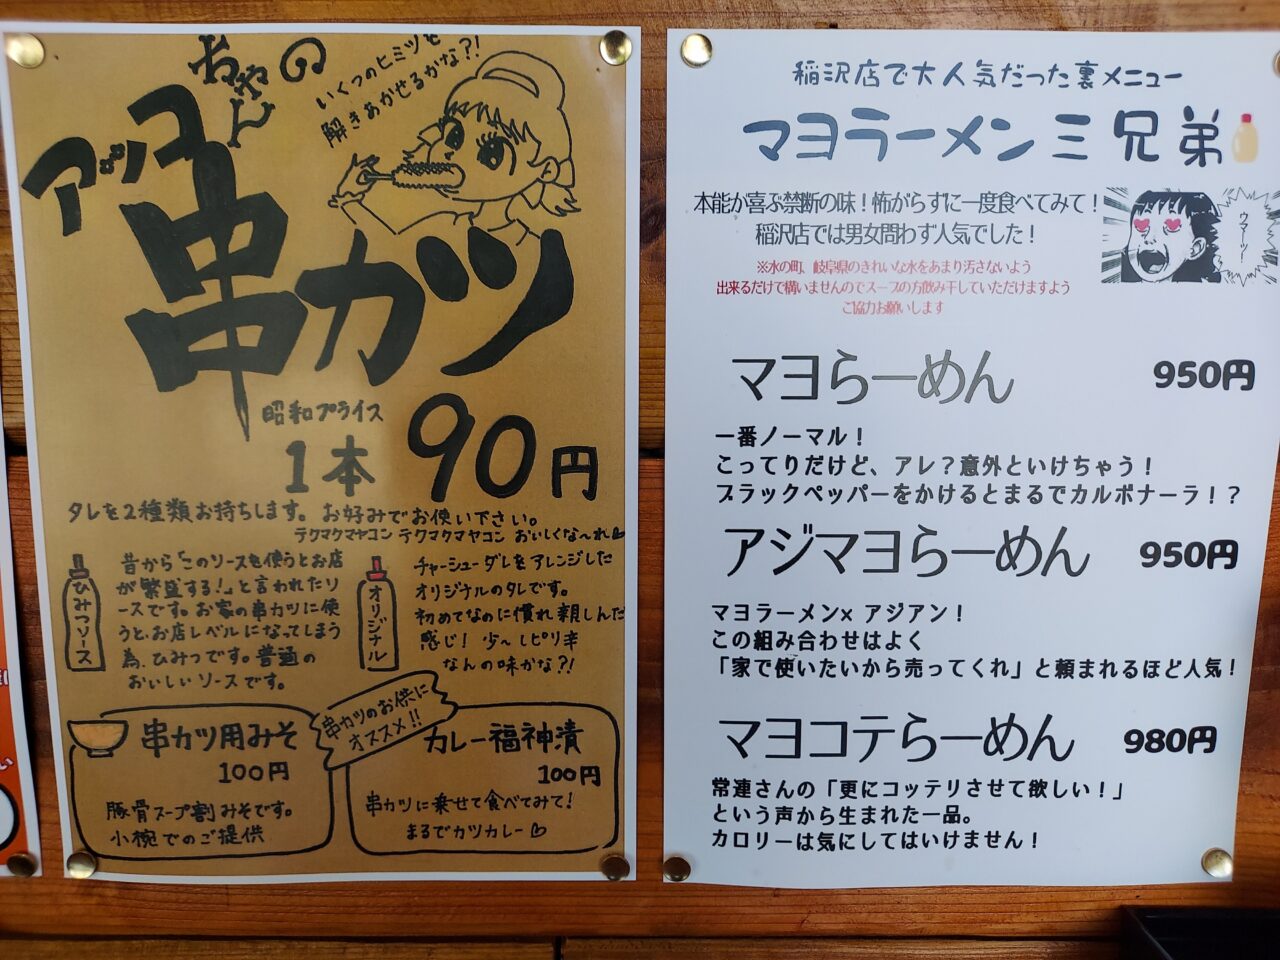 アッコちゃんの
串カツ
いくつのヒミツを
解きあかせるかな?!
昭和プライス
1本 90円
タレを2種類お持ちします。お好みでお使い下さい。
テクマクマヤコン テクマクマヤコン おいしくな〜れ♡
ひみつソース
昔から「このソースを使うとお店
が繁盛する!」と言われたソ
ースです。お家の串カツに使
うと、お店レベルになってしまう
為、ひみつです。普通の
おいしいソースです。
オリジナル
チャーシューダレをアレンジした
オリジナルのタレです。
初めてなのに慣れ親しんだ
感じ! 少〜しピリ辛
なんの味かな?!
串カツのお供に
オススメ!!
串カツ用みそ
100円
豚骨スープ割みそです。
小椀でのご提供
カレー福神漬
100円
串カツに乗せて食べてみて!
まるでカツカレー♡
稲沢店で大人気だった裏メニュー
マヨラーメン三兄弟
本能が喜ぶ禁断の味！怖がらずに一度食べてみて！
稲沢店では男女問わず人気でした！
ウマーッ!
※水の町、岐阜県のきれいな水をあまり汚さないよう
出来るだけで構いませんのでスープの方飲み干していただけますよう
ご協力お願いします
マヨらーめん 950円
一番ノーマル！
こってりだけど、アレ？意外といけちゃう！
ブラックペッパーをかけるとまるでカルボナーラ！？
アジマヨらーめん 950円
マヨラーメン× アジアン！
この組み合わせはよく
「家で使いたいから売ってくれ」と頼まれるほど人気！
マヨコテらーめん 980円
常連さんの「更にコッテリさせて欲しい！」
という声から生まれた一品。
カロリーは気にしてはいけません！